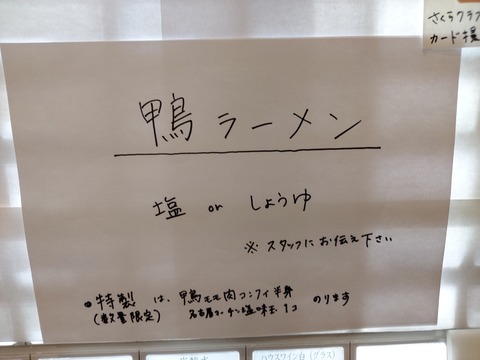 さくらクラブ
カード提
鴨ラーメン
塩 or しょうゆ
※ スタッフにお伝え下さい
●特製は、鴨モモ肉コンフィ半身
(数量限定) 名古屋コーチン塩味玉 1コ のります
ハウスワイン白(グラス)